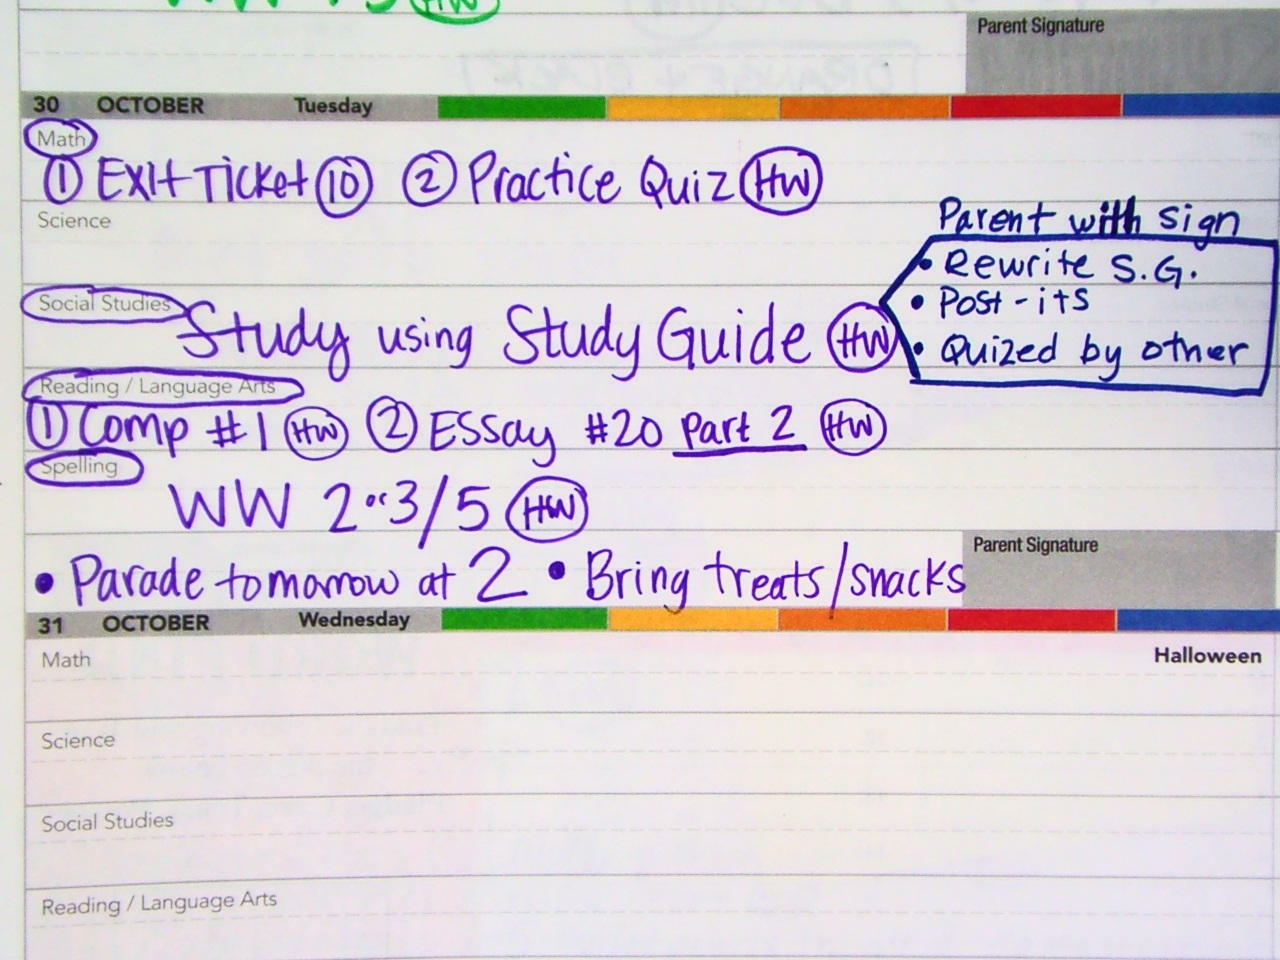 Parent Signature
30 OCTOBER Tuesday
Math
① Exit Ticket ⑩ ② Practice Quiz HW
Science
Parent with sign
• Rewrite S.G.
• Post-its
• Quized by other
Social Studies
Study using Study Guide HW
Reading / Language Arts
① Comp #1 HW ② Essay #20 Part 2 HW
Spelling
WW 2 or 3/5 HW
Parent Signature
• Parade tomarrow at 2 • Bring treats/snacks
31 OCTOBER Wednesday
Math
Halloween
Science
Social Studies
Reading / Language Arts